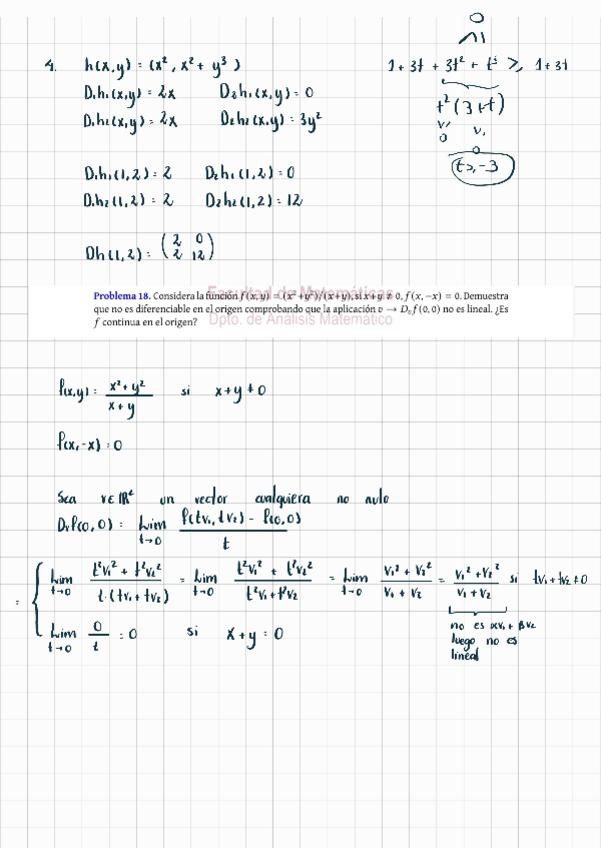 4. h(x,y) = (x², x² + y³)
D₁h₁(x,y) = 2x D₂h₁(x,y) = 0
D₁h₂(x,y) = 2x D₂h₂(x,y) = 3y²
D₁h₁(1,2) = 2 D₂h₁(1,2) = 0
D₁h₂(1,2) = 2 D₂h₂(1,2) = 12
Dh(1,2) = (2 0
2 12)
0
1 + 3t + 3t² + t³ ≥ 1 + 3t
t²(3+t)
0
0
t ≥ -3
Facultad de Matemáticas
Dpto. de Análisis Matemático
Problema 18. Considera la función f(x, y) = (x² + y²)/(x + y), si x + y ≠ 0, f(x, −x) = 0. Demuestra
que no es diferenciable en el origen comprobando que la aplicación v → Dᵥf(0, 0) no es lineal. ¿Es
f continua en el origen?
f(x,y) = (x² + y²)/(x + y) si x+y ≠ 0
f(x,-x) = 0
Sea v ∈ ℝ² un vector cualquiera no nulo
Dᵥf(0,0) = lim t→0 (f(tv₁, tv₂) - f(0,0))/t
= { lim t→0 (t²v₁² + t²v₂²)/(t·(tv₁ + tv₂)) = lim t→0 (t²v₁² + t²v₂²)/(t²v₁ + t²v₂) = lim t→0 (v₁² + v₂²)/(v₁ + v₂) = (v₁² + v₂²)/(v₁ + v₂) si tv₁ + tv₂ ≠ 0
lim t→0 0/t = 0 si x+y = 0
no es αv₁ + βv₂
luego no es
lineal